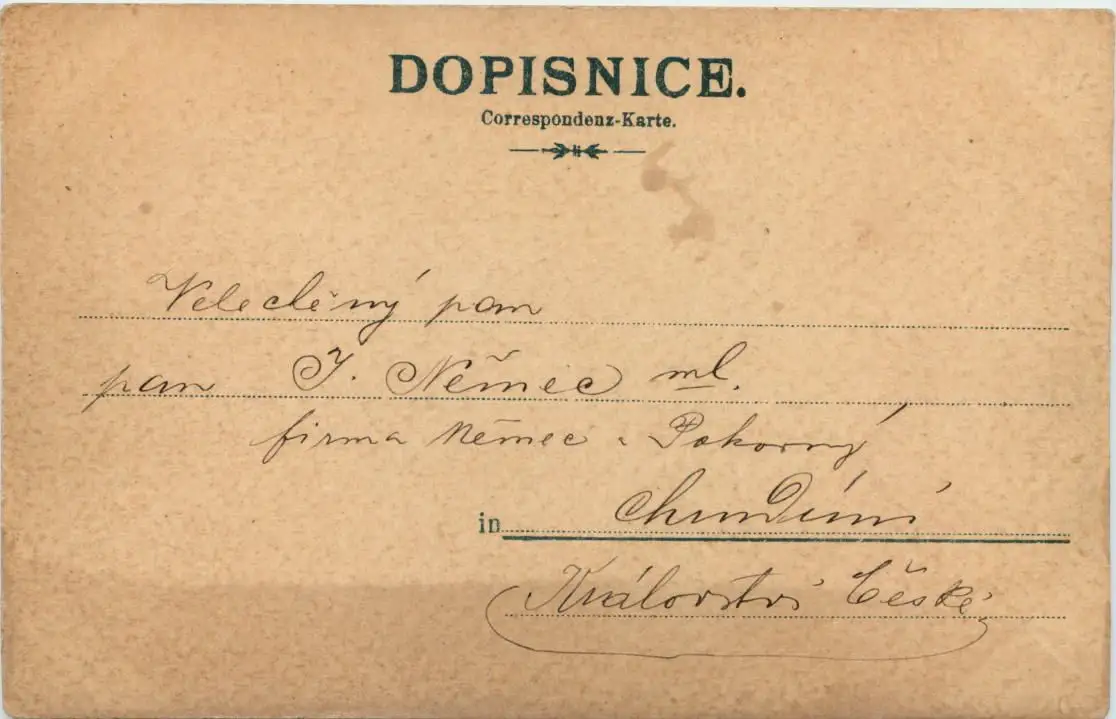 DOPISNICE.
Correspondenz-Karte.
Velectěný pan
pan J. Němec ml.
firma Němec a Pokorný
in Chrudimi
Království České